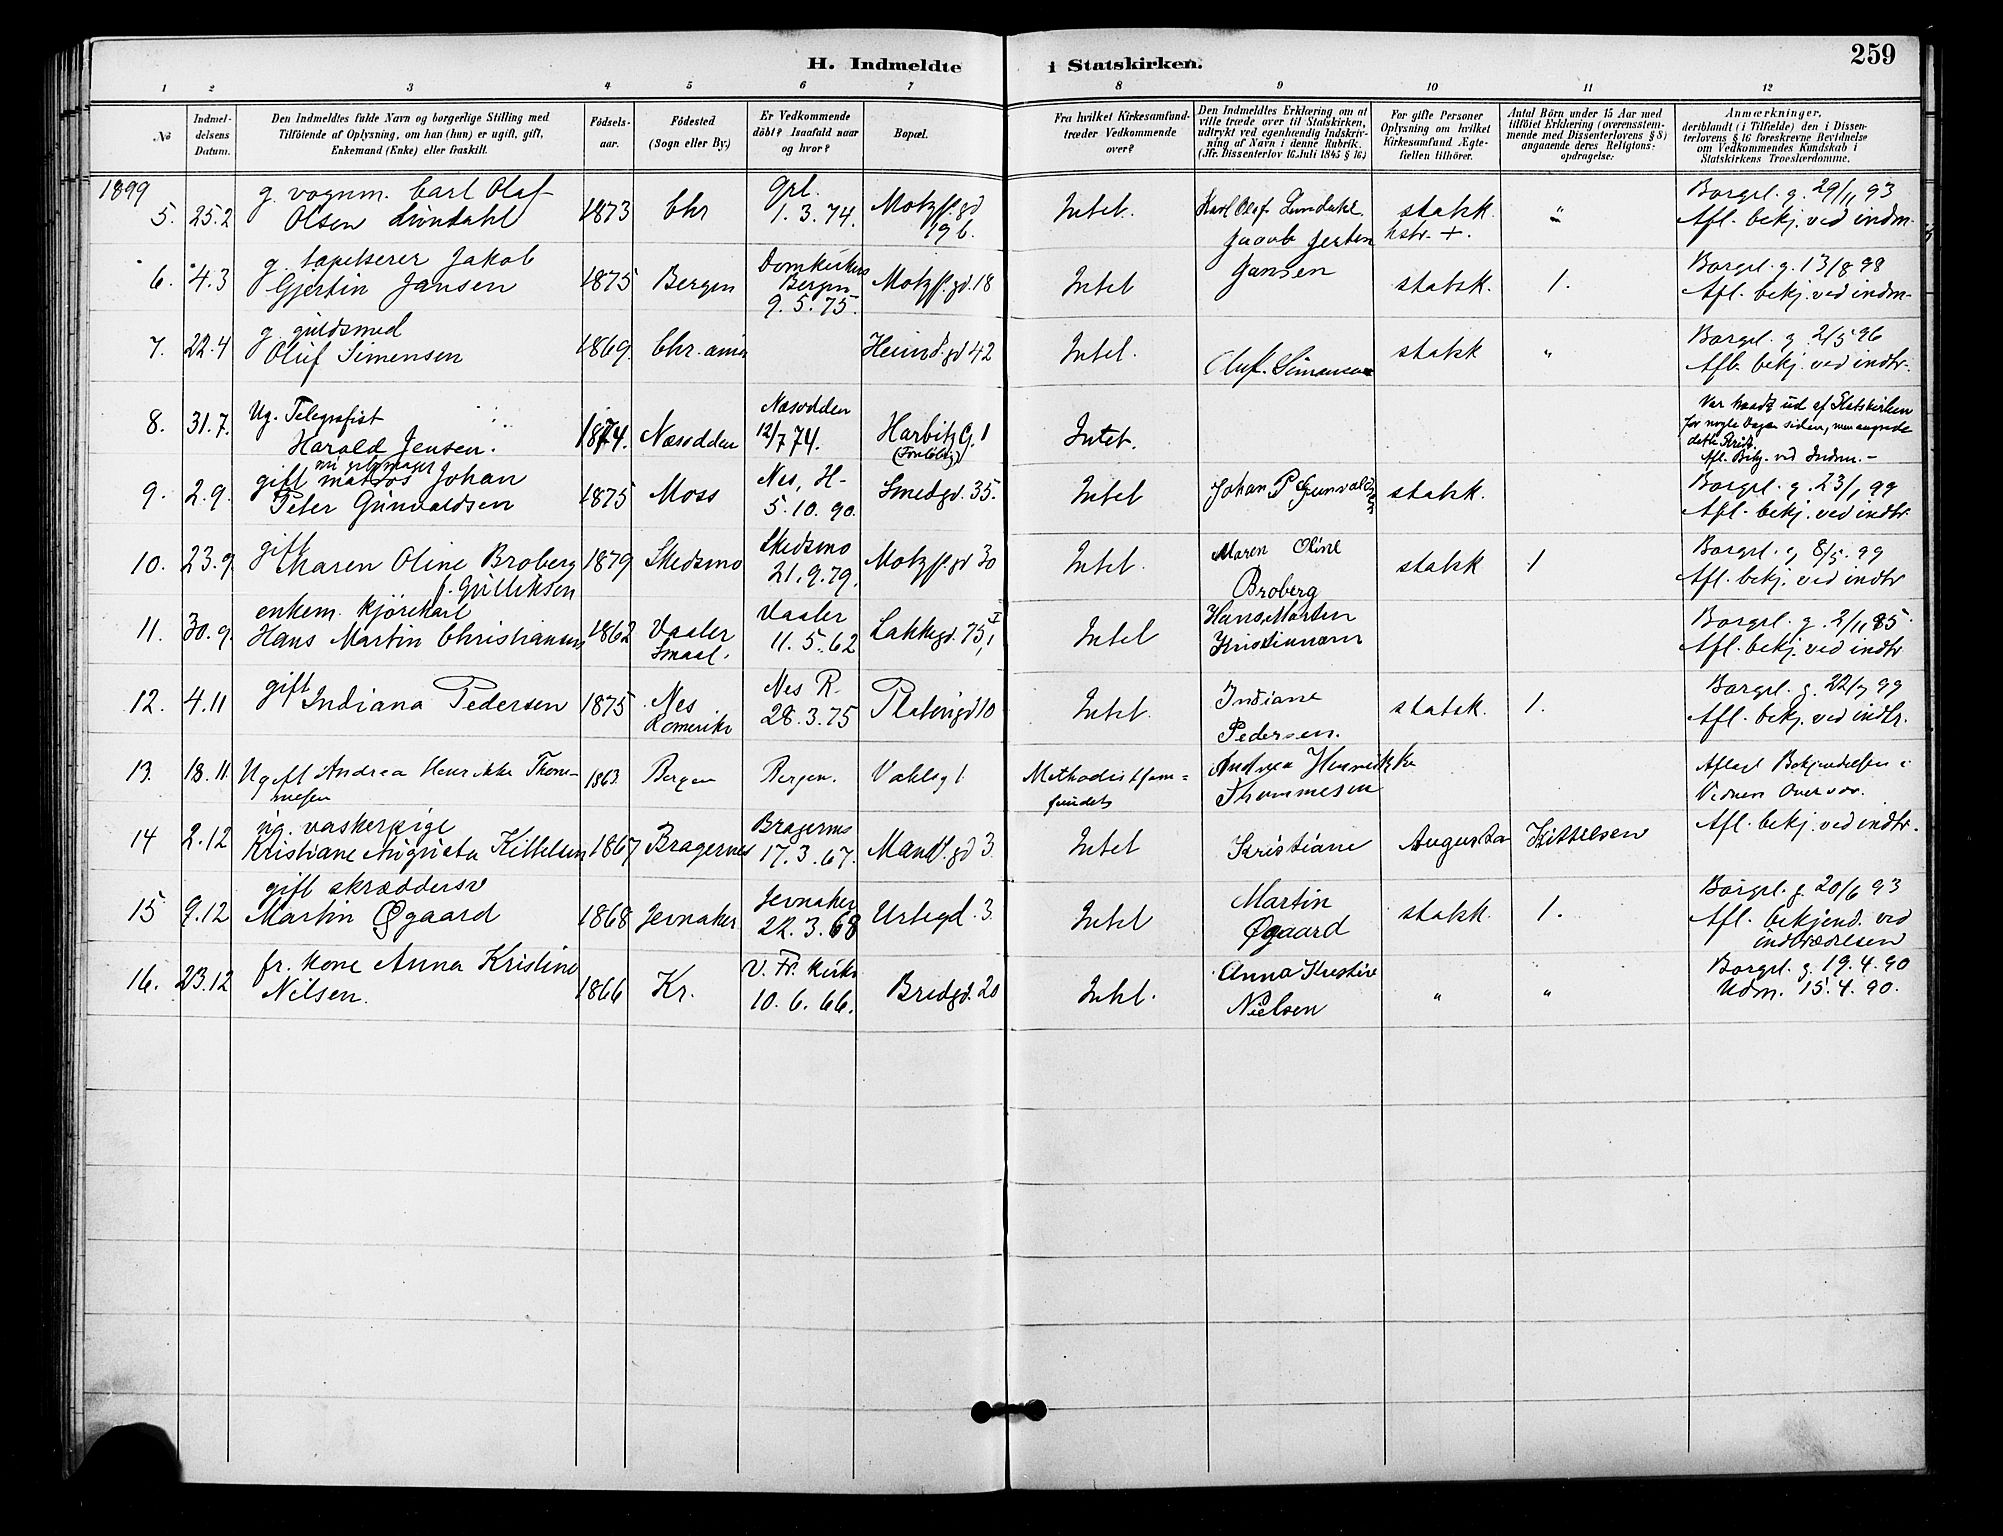 H. Indmeldte i Statskirken.
259
1 2 3 4 5 6 7 8 9 10 11 12
No
Indmel-
delsens
Datum.
Den Indmeldtes fulde Navn og borgerlige Stilling med
Tilföiende af Oplysning, om han (hun) er ugift, gift,
Enkemand (Enke) eller fraskilt.
Födsels-
aar.
Födested
(Sogn eller By.)
Er Vedkommende
döbt? Isaafald naar
og hvor?
Bopæl.
Fra hvilket Kirkesamfund
træder Vedkommende
over?
Den Indmeldtes Erklæring om at
ville træde over til Statskirken,
udtrykt ved egenhændig Indskriv-
ning af Navn i denne Rubrik.
(Jfr. Dissenterlov 16. Juli 1845 § 16.)
For gifte Personer
Oplysning om hvilket
Kirkesamfund Ægte-
fællen tilhörer.
Antal Börn under 15 Aar med
tilföiet Erklæring (overensstem-
mende med Dissenterlovens § 8)
angaaende deres Religions-
opdragelse:
Anmærkninger,
deriblandt (i Tilfælde) den i Dissen-
terlovens § 16 foreskrevne Bevidnelse
om Vedkommendes Kundskab i
Statskirkens Troeslærdomme.
1899
5. 25.2
g. vognm. Carl Olaf
Olsen Lundahl
1873 Chr
Grl.
1.3.74.
Motzf. gd
19b.
Intet.
Karl Olaf Lundahl.
statsk.
hstr. +.
"
Borgrl. g. 29/11 93
Afl. bekj. ved indm.
6. 4.3
g. tapetserer Jakob
Gjertin Jansen
1875 Bergen
Domkirken
Bergen
9.5.75.
Motzf. gd. 18
Intet
Jacob Jertin
Jansen
statsk. 1.
Borgrl. g. 13/8 98
Afl. bekj. ved indm.
7. 22.4
g. guldsmed
Oluf Simensen
1869. Chr.ania
Heimd. gd 42
Intet.
Oluf. Simensen
statsk "
Borgrl. g. 2/5 96
Afl. bekj. ved indtr.
8. 31.7.
Ug. Telegrafist
Harald Jensen.
1874. Næsodden
Næsodden
12/7 74.
Harbitz G. 1
(Foreløbig)
Intet.
Var traadt ud af Statskirken
for nogle Dage siden, men angrede
dette Skridt.
Afl. Bekj. ved Indm. -
9. 2.9.
gift matros Johan
Peter Gunvaldsen
1875 Moss
Nes, H-
5.10.90.
Smedgd. 35.
Intet
Johan P Gunvaldsen
statsk.
Borgrl. g. 23/1 99
Afl. bekj. ved indtr.
10. 23.9
gift
Maren Oline Broberg
f. Gulliksen
1879 Skedsmo
Skedsmo
21.9.79.
Motzf. gd 30
Intet.
Maren Oline
Broberg
statsk 1
Borgrl. g 8/5.99
Afl. bekj. ved indtr
11. 30.9.
enkem. kjörekarl
Hans Martin Christiansen
1862
Vaaler
Smaal.
Vaaler
11.5.62
Lakkegd. 75, I
Intet
Hans Morten
Kristiansen
Borgrl. g. 2/11 85.
Afl. bekj. ved indtr
12. 4.11
gift Indiana Pedersen
1875
Nes
Romerike
Nes R.
28.3.75
Platougd 10
Intet.
Indiane
Pedersen.
statsk. 1.
Borgrl. g. 22/7 99
Afl. bekj. ved indtr.
13. 18.11.
Ugift Andrea Henrikke Thom-
mesen
1863 Bergen Bergen. Vahlsg 1
Methodistsam=
fundet
Andrea Henrikke
Thommesen
Aflagt Bekjendelsen i
Vidners Overvær.
14 2.12
ug. vaskerpige
Kristiane Augusta Kittelsen
1867 Bragernes
Bragernes
17.3.67.
Mandl. gd 3
Intet
Kristiane Augusta Kittelsen
Afl. bekj. ved indtr.
15 9.12
gift skræddersv
Martin Øgaard
1868 Jevnaker
Jevnaker
22.3.68
Urtegd. 3.
Intet
Martin
Øgaard
statsk. 1.
Borgrl. g. 20/6 93
Afl. bekjend. ved
indtrædelsen
16. 23.12
fr. kone Anna Kristine
Nilsen.
1866 Kr.
V. Fr. kirke
10.6.66.
Bredgd. 20
Intet.
Anna Kristine
Nielsen
" "
Borgrl. g. 19.4.90
Udm. 15.4.90.